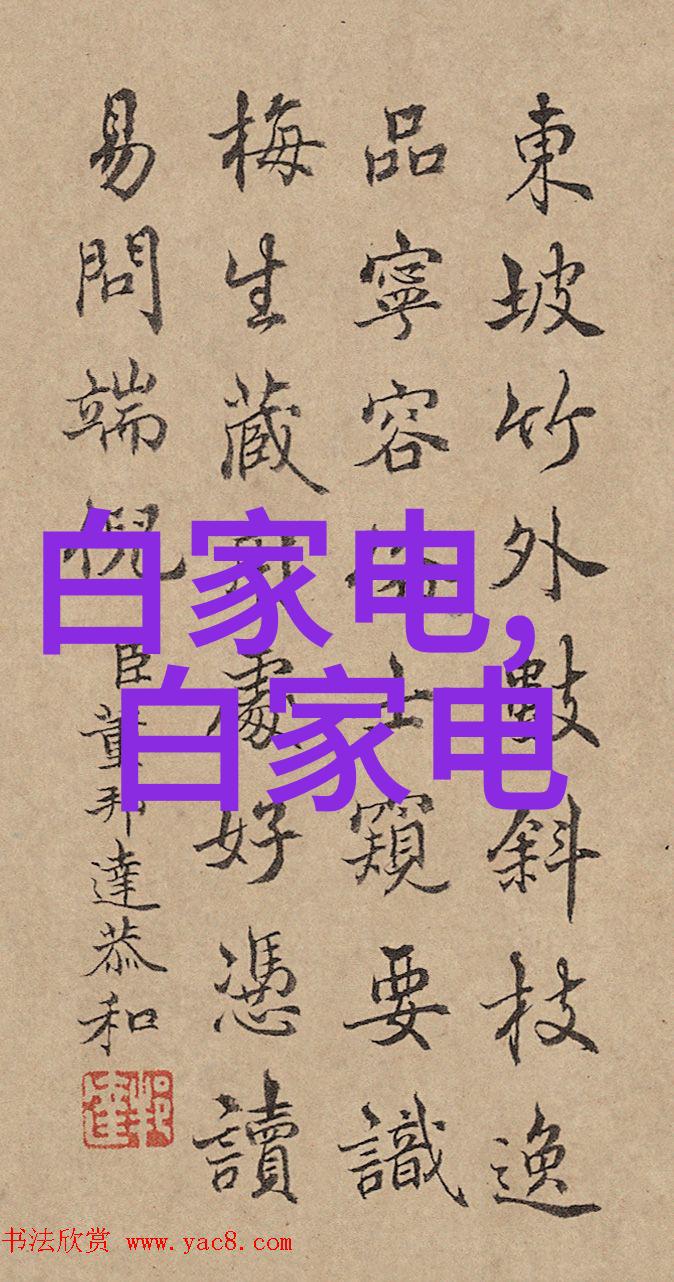 東坡竹外數斜枝逸
品寧容士窺要識
梅生藏處好憑讀
易問端倪 臣董邦達恭和
白家电,
白家电
书法欣赏 www.yac8.com